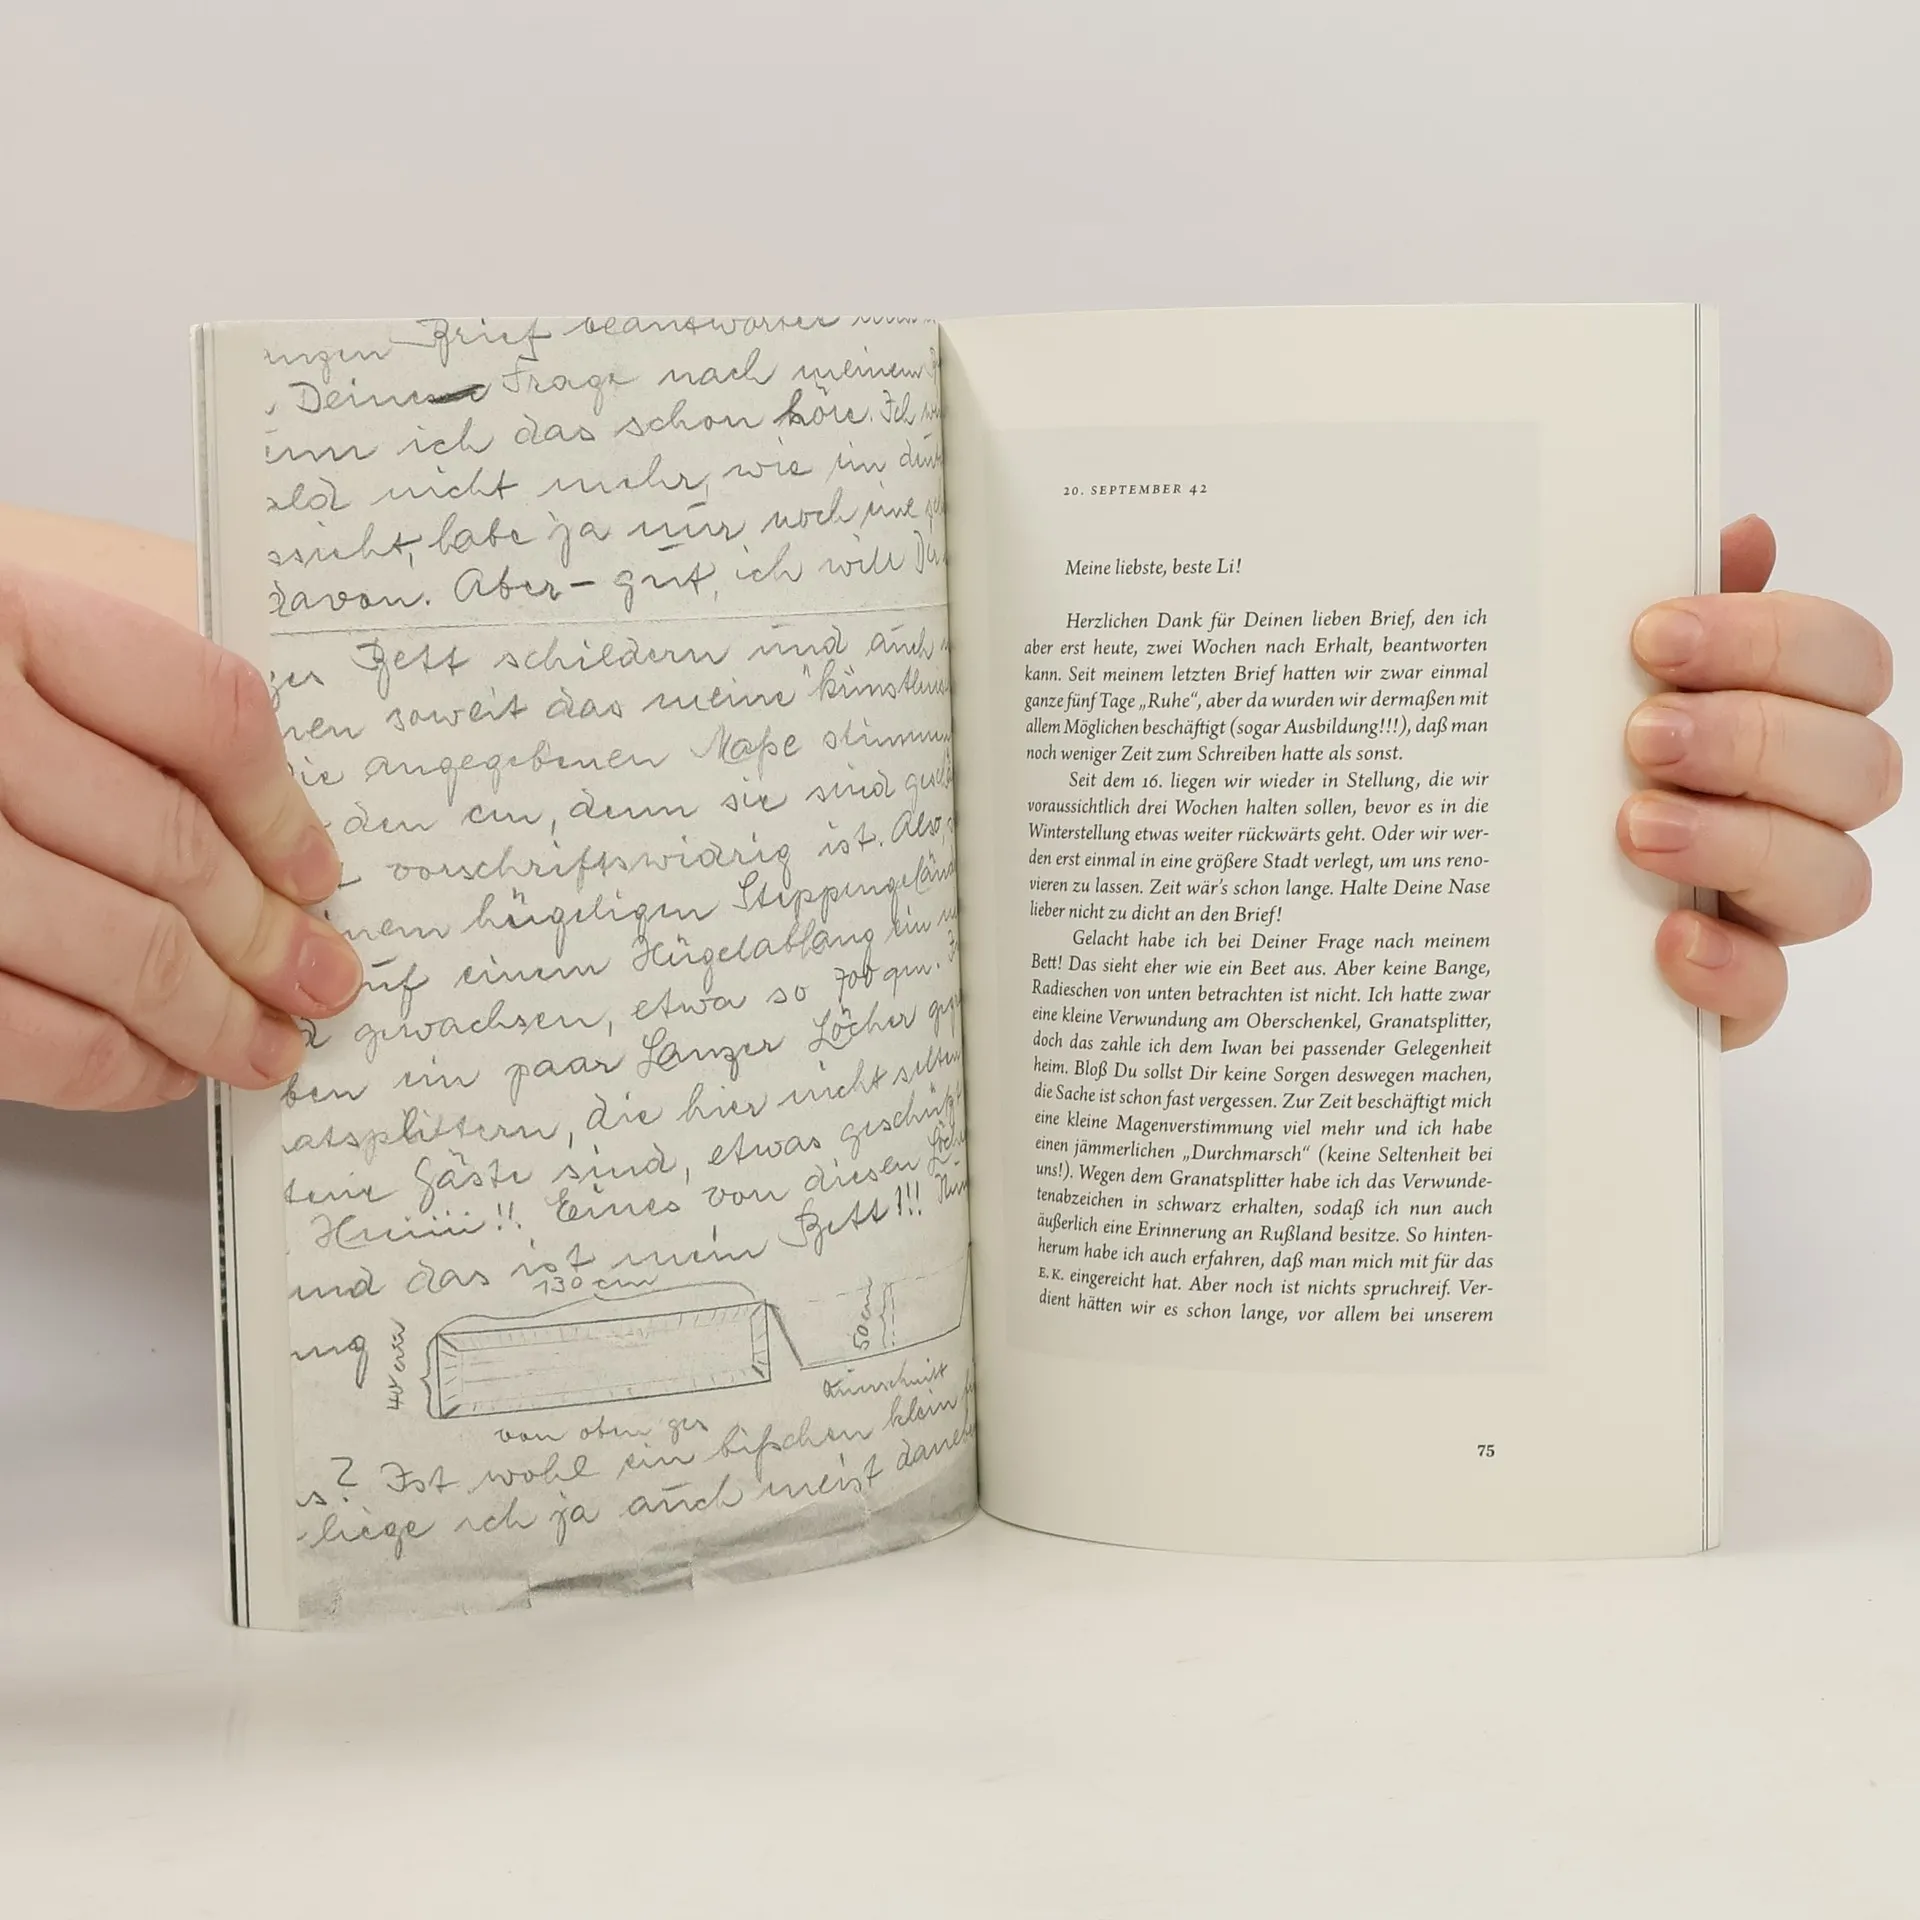 Brief beantworten
Deine Frage nach meinem
ich das schon höre. Ich
nicht mehr, wie im
habe ja nur noch eine
davon. Aber – gut, ich will Dir
Bett schildern und auch
soweit das meine "künstleri
angegebenen Maße stimmen
den cm, denn sie sind
vorschriftswidrig ist. Also,
hügeligen Steppengelände
auf einem Hügelabhang ein
gewachsen, etwa so 700 qm.
ben ein paar Landser Löcher
atsplittern, die hier nicht selten
Gäste sind, etwas geschützt
Huiiii!! Eines von diesen
und das ist mein Bett!!!
130 cm
50 cm
ung
40 cm
Querschnitt
von oben ges
s? Ist wohl ein bißchen klein
liege ich ja auch meist daneben
20. SEPTEMBER 42
Meine liebste, beste Li!
Herzlichen Dank für Deinen lieben Brief, den ich
aber erst heute, zwei Wochen nach Erhalt, beantworten
kann. Seit meinem letzten Brief hatten wir zwar einmal
ganze fünf Tage „Ruhe“, aber da wurden wir dermaßen mit
allem Möglichen beschäftigt (sogar Ausbildung!!!), daß man
noch weniger Zeit zum Schreiben hatte als sonst.
Seit dem 16. liegen wir wieder in Stellung, die wir
voraussichtlich drei Wochen halten sollen, bevor es in die
Winterstellung etwas weiter rückwärts geht. Oder wir wer-
den erst einmal in eine größere Stadt verlegt, um uns reno-
vieren zu lassen. Zeit wär's schon lange. Halte Deine Nase
lieber nicht zu dicht an den Brief!
Gelacht habe ich bei Deiner Frage nach meinem
Bett! Das sieht eher wie ein Beet aus. Aber keine Bange,
Radieschen von unten betrachten ist nicht. Ich hatte zwar
eine kleine Verwundung am Oberschenkel, Granatsplitter,
doch das zahle ich dem Iwan bei passender Gelegenheit
heim. Bloß Du sollst Dir keine Sorgen deswegen machen,
die Sache ist schon fast vergessen. Zur Zeit beschäftigt mich
eine kleine Magenverstimmung viel mehr und ich habe
einen jämmerlichen „Durchmarsch“ (keine Seltenheit bei
uns!). Wegen dem Granatsplitter habe ich das Verwunde-
tenabzeichen in schwarz erhalten, sodaß ich nun auch
äußerlich eine Erinnerung an Rußland besitze. So hinten-
herum habe ich auch erfahren, daß man mich mit für das
E.K. eingereicht hat. Aber noch ist nichts spruchreif. Ver-
dient hätten wir es schon lange, vor allem bei unserem
75